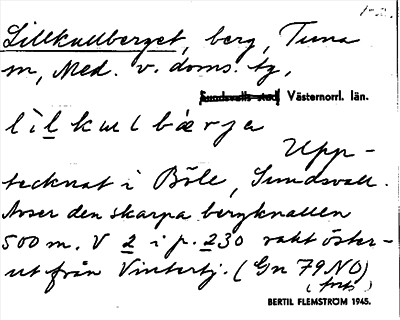 1-2.
Lillkullberget, berg, Tuna
m, Med. v. doms. tg,
Sundsvalls stad Västernorrl. län.
lìlkulbærja
Upp-
tecknat i Böle, Sundsvall.
Avser den skarpa bergknallen
500 m. V 2 i p. 230 rakt öster-
ut från Vintertj. (Gn 79 NO)
(forts)
BERTIL FLEMSTRÖM 1945.